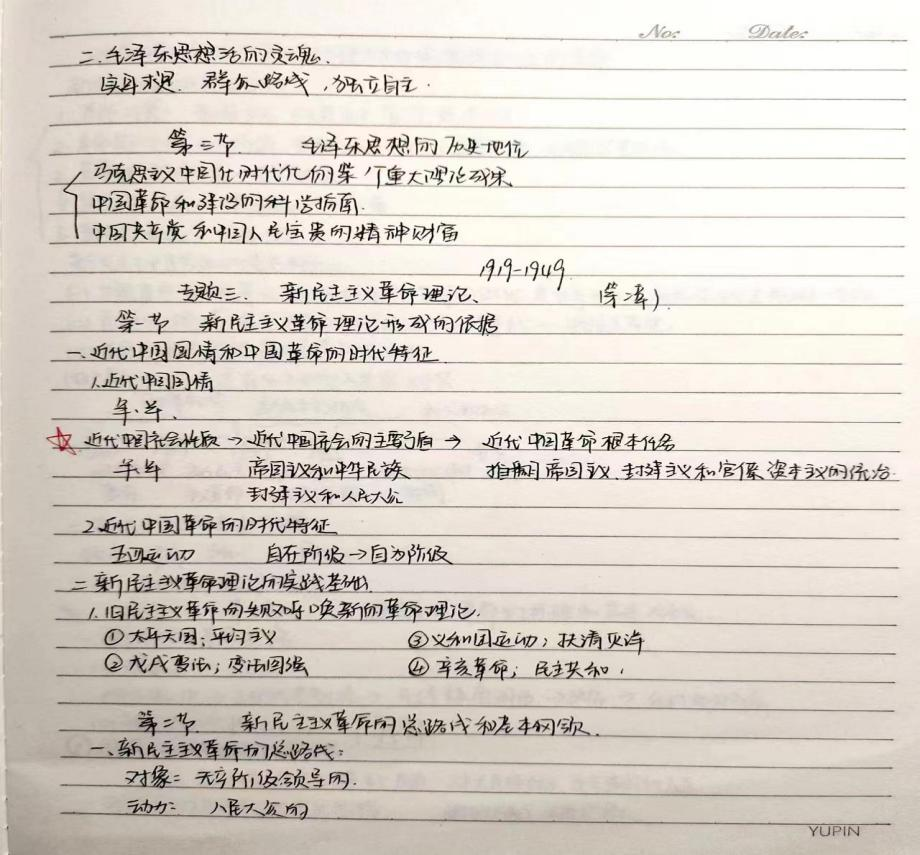 No: Date:
二.毛泽东思想活的灵魂.
实事求是. 群众路线,独立自主.
第三节. 毛泽东思想的历史地位
马克思主义中国化时代化的第一个重大理论成果
中国革命和建设的科学指南.
中国共产党和中国人民宝贵的精神财富
1919-1949.
专题三. 新民主主义革命理论、 (第2章).
第一节 新民主主义革命理论形成的依据
一、近代中国国情和中国革命的时代特征
1.近代中国国情
半.半.
近代中国社会性质→近代中国社会的主要矛盾→ 近代中国革命根本任务
半.半 帝国主义和中华民族 推翻帝国主义.封建主义和官僚资本主义的统治.
封建主义和人民大众
2.近代中国革命的时代特征
五四运动 自在阶级→自为阶级
二.新民主主义革命理论的实践基础
1.旧民主主义革命的失败呼唤新的革命理论.
①太平天国;平均主义 ③义和团运动;扶清灭洋
②戊戌变法;变法图强 ④辛亥革命;民主共和.
第二节. 新民主主义革命的总路线和基本纲领.
一、新民主主义革命的总路线:
对象: 无产阶级领导的.
动力: 人民大众的
YUPIN